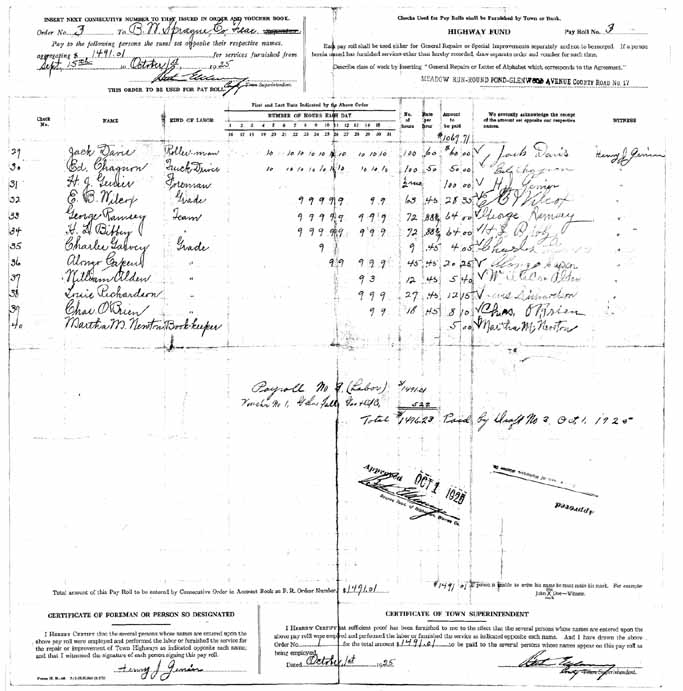 INSERT NEXT CONSECUTIVE NUMBER TO THAT ISSUED IN ORDER AND VOUCHER BOOK.
Order No. 3 To B. W. Sprague, Co. Treas.
Pay to the following persons the sums set opposite their respective names,
aggregating $ 1491.01 for services furnished from
Sept. 15th to October 1st 1925
Town Superintendent.
THIS ORDER TO BE USED FOR PAY ROLL
Checks Used for Pay Rolls shall be Furnished by Town or Bank.
HIGHWAY FUND Pay Roll No. 3
Each pay roll shall be used either for General Repairs or Special Improvements separately and not to be merged. If a person
herein named has furnished services other than hereby recorded, draw separate order and voucher for each item.
Describe class of work by inserting "General Repairs or Letter of Alphabet which corresponds to the Agreement."
MEADOW RUN-ROUND POND-GLENWOOD AVENUE COUNTY ROAD No 17
First and Last Date Indicated by the Above Order
Check No. NAME KIND OF LABOR NUMBER OF HOURS EACH DAY No. of hours Rate per hour Amount to be paid We severally acknowledge the receipt of the amount set opposite our respective names. WITNESS
1 2 3 4 5 6 7 8 9 10 11 12 13 14 15
16 17 18 19 20 21 22 23 24 25 26 27 28 29 30 31
$1067.71
29 Jack Davis Roller man 10 10 10 10 10 10 10 10 10 100 60 60 00 Jack Davis Henry J. Genier
30 Ed. Chagnon Truck Driver 10 10 10 10 10 10 10 10 10 100 50 50 00 Ed Chagnon
31 H. J. Genier Foreman 100 00 H. J. Genier
32 E. B. Wilcox Grade 9 9 9 9 9 9 9 63 45 28 35 E B Wilcox
33 George Ramsey Team 9 9 9 9 9 9 9 9 72 64 00 George Ramsey
34 H. L. Bibby " 9 9 9 9 9 9 9 9 72 64 00
35 Charlie Garvey Grade 9 9 45 4 05 Charles
36 Alonzo " 9 9 9 9 9 45 45 20 25 Alonzo
37 William Alden " 9 3 12 45 5 40
38 Louie Richardson " 9 9 9 27 45 12 15
39 Chas O'Brien " 9 9 18 45 8 10 Chas. O'Brien
40 Martha M. Newton Bookkeeper 5 00 Martha M. Newton
Payroll No 3 (Labor) $1491.01
Voucher No 1, Glens Falls 5.22
Total $1496.23 Paid by Draft No 3 Oct 1, 1925
Approved OCT 1 1925
Approved
Total amount of this Pay Roll to be entered by Consecutive Order in Account Book as P. R. Order Number $1491.01
$1491 01 If person is unable to write his name he must make his mark. For example
John X Doe—Witness.
CERTIFICATE OF FOREMAN OR PERSON SO DESIGNATED
I HEREBY CERTIFY that the several persons whose names are entered upon the
above pay roll were employed and performed the labor or furnished the service for
the repair or improvement of Town Highways as indicated opposite each name,
and that I witnessed the signature of each person signing this pay roll.
Henry J. Genier
CERTIFICATE OF TOWN SUPERINTENDENT
I HEREBY CERTIFY that sufficient proof has been furnished to me to the effect that the several persons whose names are entered upon the
above pay roll were employed and performed the labor or furnished the service as indicated opposite each name. And I have drawn the above
Order No. for the total amount $ 1491.01 to be paid to the several persons whose names appear on this pay roll as
being employed.
Dated October 1st 1925
Town Superintendent.